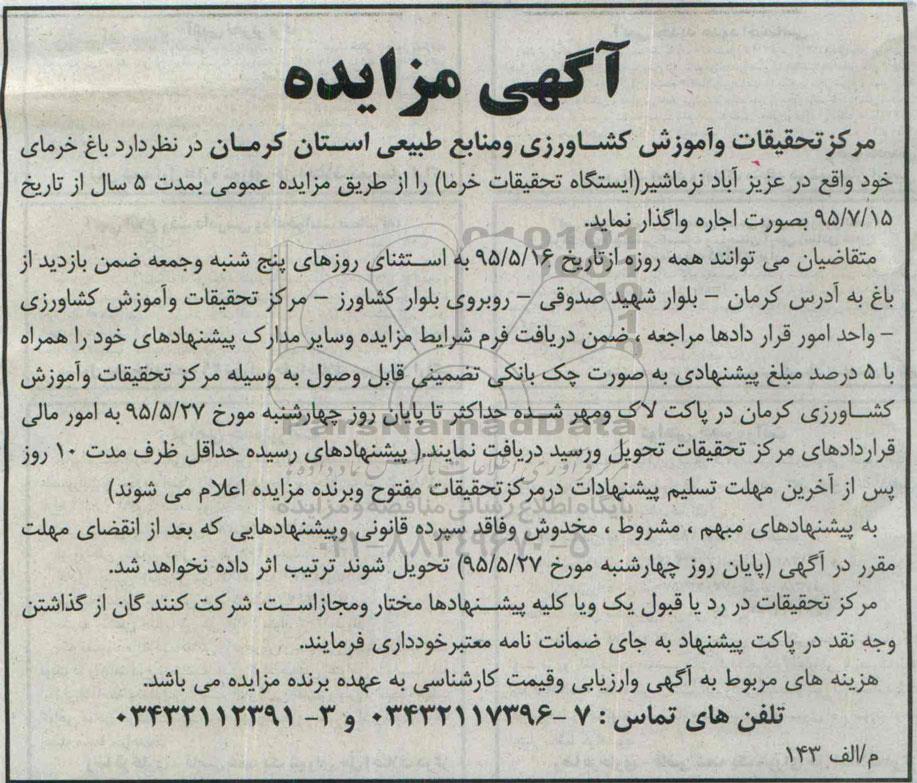 آگهی مزایده
مرکز تحقیقات وآموزش کشـاورزی ومنابع طبیعی اسـتان کرمـان در نظردارد باغ خرمای
خود واقع در عزیز آباد نرماشیر(ایستگاه تحقیقات خرما) را از طریق مزایده عمومی بمدت ۵ سال از تاریخ
۹۵/۷/۱۵ بصورت اجاره واگذار نماید.
متقاضیان می توانند همه روزه ازتاریخ ۹۵/۵/۱۶ به اسـتثنای روزهای پنج شنبه وجمعه ضمن بازدید از
باغ به آدرس کرمان – بلوار شهید صدوقی – روبروی بلوار کشاورز – مرکز تحقیقات وآموزش کشاورزی
– واحد امور قرار دادها مراجعه ، ضمن دریافت فرم شرایط مزایده وسایر مدارک پیشنهادهای خود را همراه
با ۵ درصد مبلغ پیشنهادی به صورت چک بانکی تضمینی قابل وصول به وسیله مرکز تحقیقات وآموزش
کشـاورزی کرمان در پاکت لاک ومهر شـده حداکثر تا پایان روز چهارشنبه مورخ ۹۵/۵/۲۷ به امور مالی
قراردادهای مرکز تحقیقات تحویل ورسید دریافت نمایند.( پیشنهادهای رسیده حداقل ظرف مدت ۱۰ روز
پس از آخرین مهلت تسلیم پیشنهادات درمرکزتحقیقات مفتوح وبرنده مزایده اعلام می شوند)
به پیشنهادهای مبهم ، مشروط ، مخدوش وفاقد سپرده قانونی وپیشنهادهایی که بعد از انقضای مهلت
مقرر در آگهی (پایان روز چهارشنبه مورخ ۹۵/۵/۲۷) تحویل شوند ترتیب اثر داده نخواهد شد.
مرکز تحقیقات در رد یا قبول یک ویا کلیه پیشـنهادها مختار ومجازاسـت. شرکت کنند گان از گذاشتن
وجه نقد در پاکت پیشنهاد به جای ضمانت نامه معتبرخودداری فرمایند.
هزینه های مربوط به آگهی وارزیابی وقیمت کارشناسی به عهده برنده مزایده می باشد.
تلفن های تماس : ۷ -۰۳۴۳۲۱۱۷۳۹۶ و ۳- ۰۳۴۳۲۱۱۲۳۹۱
م/الف ۱۴۳
ParsNamadData
پایگاه اطلاع رسانی مناقصه و مزایده
۰۲۱-۸۸۳۴۹۶۷۰-۵